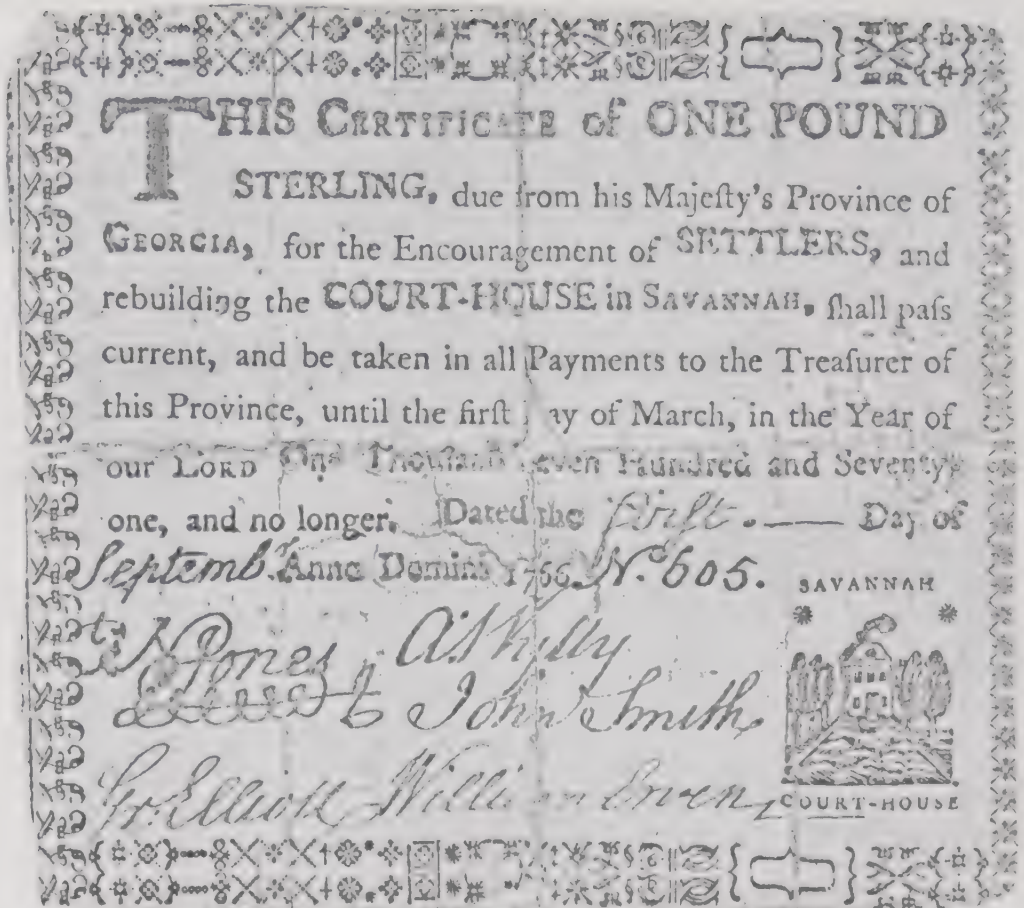 THIS CERTIFICATE of ONE POUND
STERLING, due from his Majeſty's Province of
GEORGIA, for the Encouragement of SETTLERS, and
rebuilding the COURT-HOUSE in SAVANNAH, ſhall paſs
current, and be taken in all Payments to the Treaſurer of
this Province, until the firſt ay of March, in the Year of
our LORD One Thouſand ſeven Hundred and Seventy-
one, and no longer. Dated the firſt. — Day of
Septemb.r Anno Domini 1766 No. 605.
SAVANNAH
N Jones
John Smith
Gr. Elliott William Ewen
COURT-HOUSE